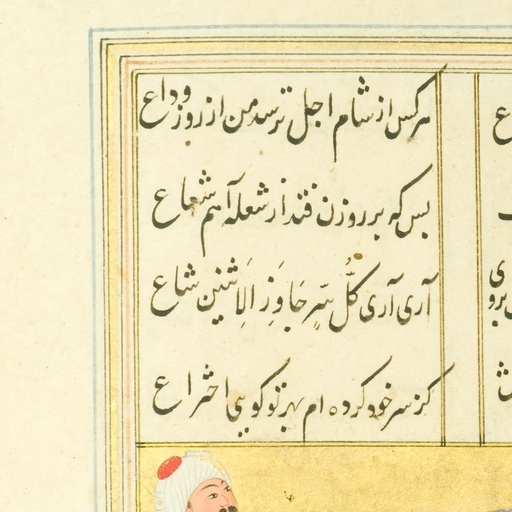 هرکس از شام اجل ترسد من از روز وداع
بس که بر روزن فتد از شعله آهم شعاع
آری آری کُلُّ سّرٍ جَاوَزِ الاِثنین شاع
کز سر خود کرده ام بهر تو گویی اختراع